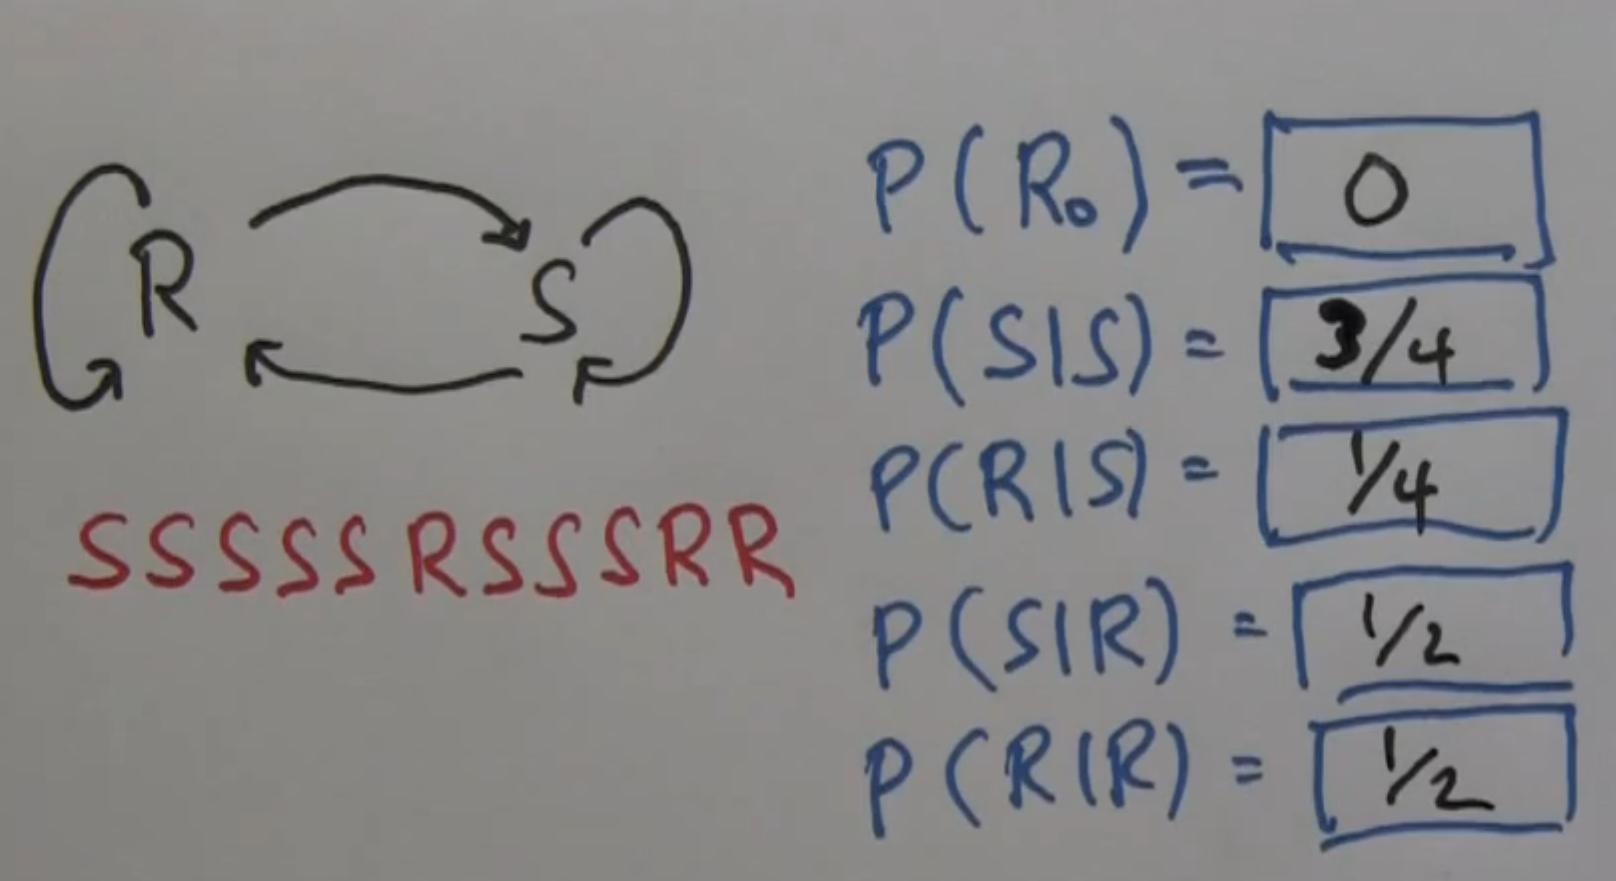 R S
SSSSSRSSSRR
P(R₀) = 0
P(S|S) = 3/4
P(R|S) = 1/4
P(S|R) = 1/2
P(R|R) = 1/2